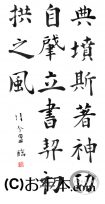 典墳斯著神功
自肇立書契初
拱之風
(C)お手本.com